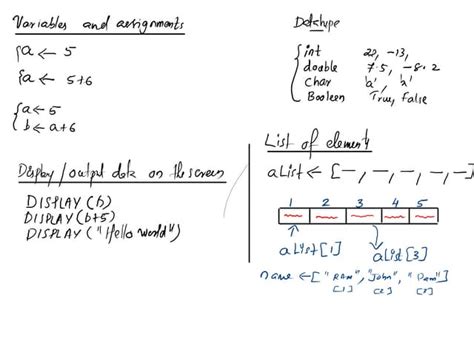 Variables and assignments
a ← 5
a ← 5+6
a ← 5
b ← a+6
Display/output data on the screen
DISPLAY (b)
DISPLAY (b+5)
DISPLAY ("Hello world")
Datatype
int 22, -13,
double 7.5, -8.2
Char 'a',
Boolean True, false
List of elements
aList ← [–, –, –, –, –]
1 2 3 4 5
aList[1] aList[3]
name ← ["Ram", "John", "Dam"]
[1] [2] [3]